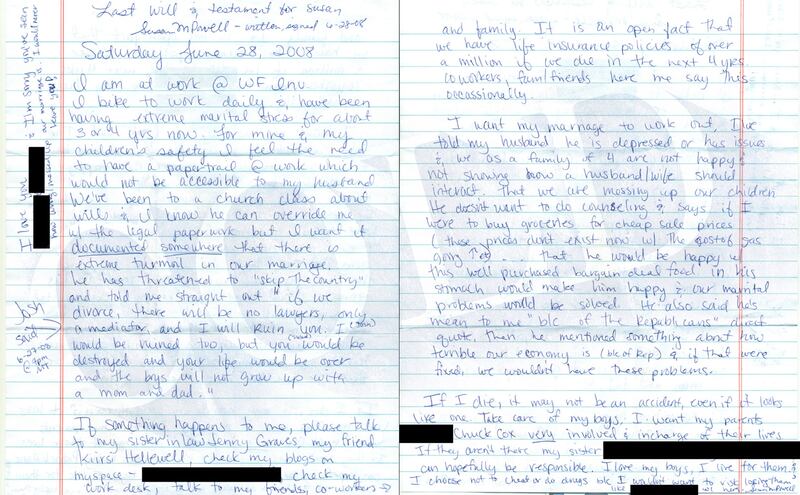 Last will & testament for Susan
Susan M Powell - written, signed 6-28-08
Saturday June 28, 2008
I am at work @ WF Inv.
I bike to work daily & have been
having extreme marital stress for about
3 or 4 yrs now. For mine & my
children's safety I feel the need
to have a paper trail @ work which
would not be accessible to my husband
We've been to a church class about
wills & I know he can override me
w/ the legal paperwork but I want it
documented somewhere that there is
extreme turmoil in our marriage.
he has threatened to "skip the country"
and told me straight out "if we
divorce, there will be no lawyers, only
a mediator, and I will ruin you. I (Josh)
would be ruined too, but you would be
destroyed and your life would be over
and the boys will not grow up with
a mom and dad."
If something happens to me, please talk
to my sister in law Jenny Graves, my friend
Kiirsi Hellewell, check my blogs on
myspace - check my
work desk, talk to my friends, co-workers →
I love you
& I'm sorry you've seen
our marriage is. I would never
leave you!
Josh
said
6-27-08
@ 9pm
and family. It is an open fact that
we have life insurance policies of over
a million if we die in the next 4 yrs
coworkers, fam/friends here me say this
occassionally.
I want my marriage to work out, I've
told my husband he is depressed or has issues
& we as a family of 4 are not happy &
not showing how a husband/wife should
interact. That we are messing up our children
He doesn't want to do counseling & says if I
were to buy groceries for cheap sale prices
(these prices don't exist now w/ the cost of gas
going ↑ etc) ... that he would be happy w/
this well purchased bargain deal food in his
stomach would make him happy & our marital
problems would be solved. He also said he's
mean to me "b/c of the Republicans" direct
quote, then he mentioned something about how
terrible our economy is (b/c of Rep) & if that were
fixed, we wouldn't have these problems.
If I die, it may not be an accident, even if it looks
like one. Take care of my boys. I want my parents
Chuck Cox very involved & in charge of their lives
If they aren't there my sister
can hopefully be responsible. I love my boys, I live for them &
I choose not to cheat or do drugs b/c I wouldn't want to risk losing them
like